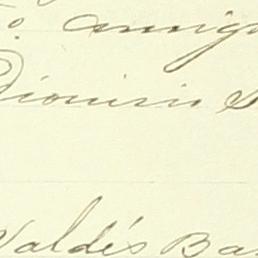 o. amigo
Dionisio S
Valdés Bar